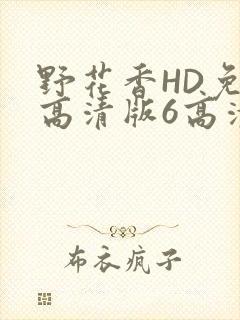 野花香HD免
高清版6高清
布衣疯子